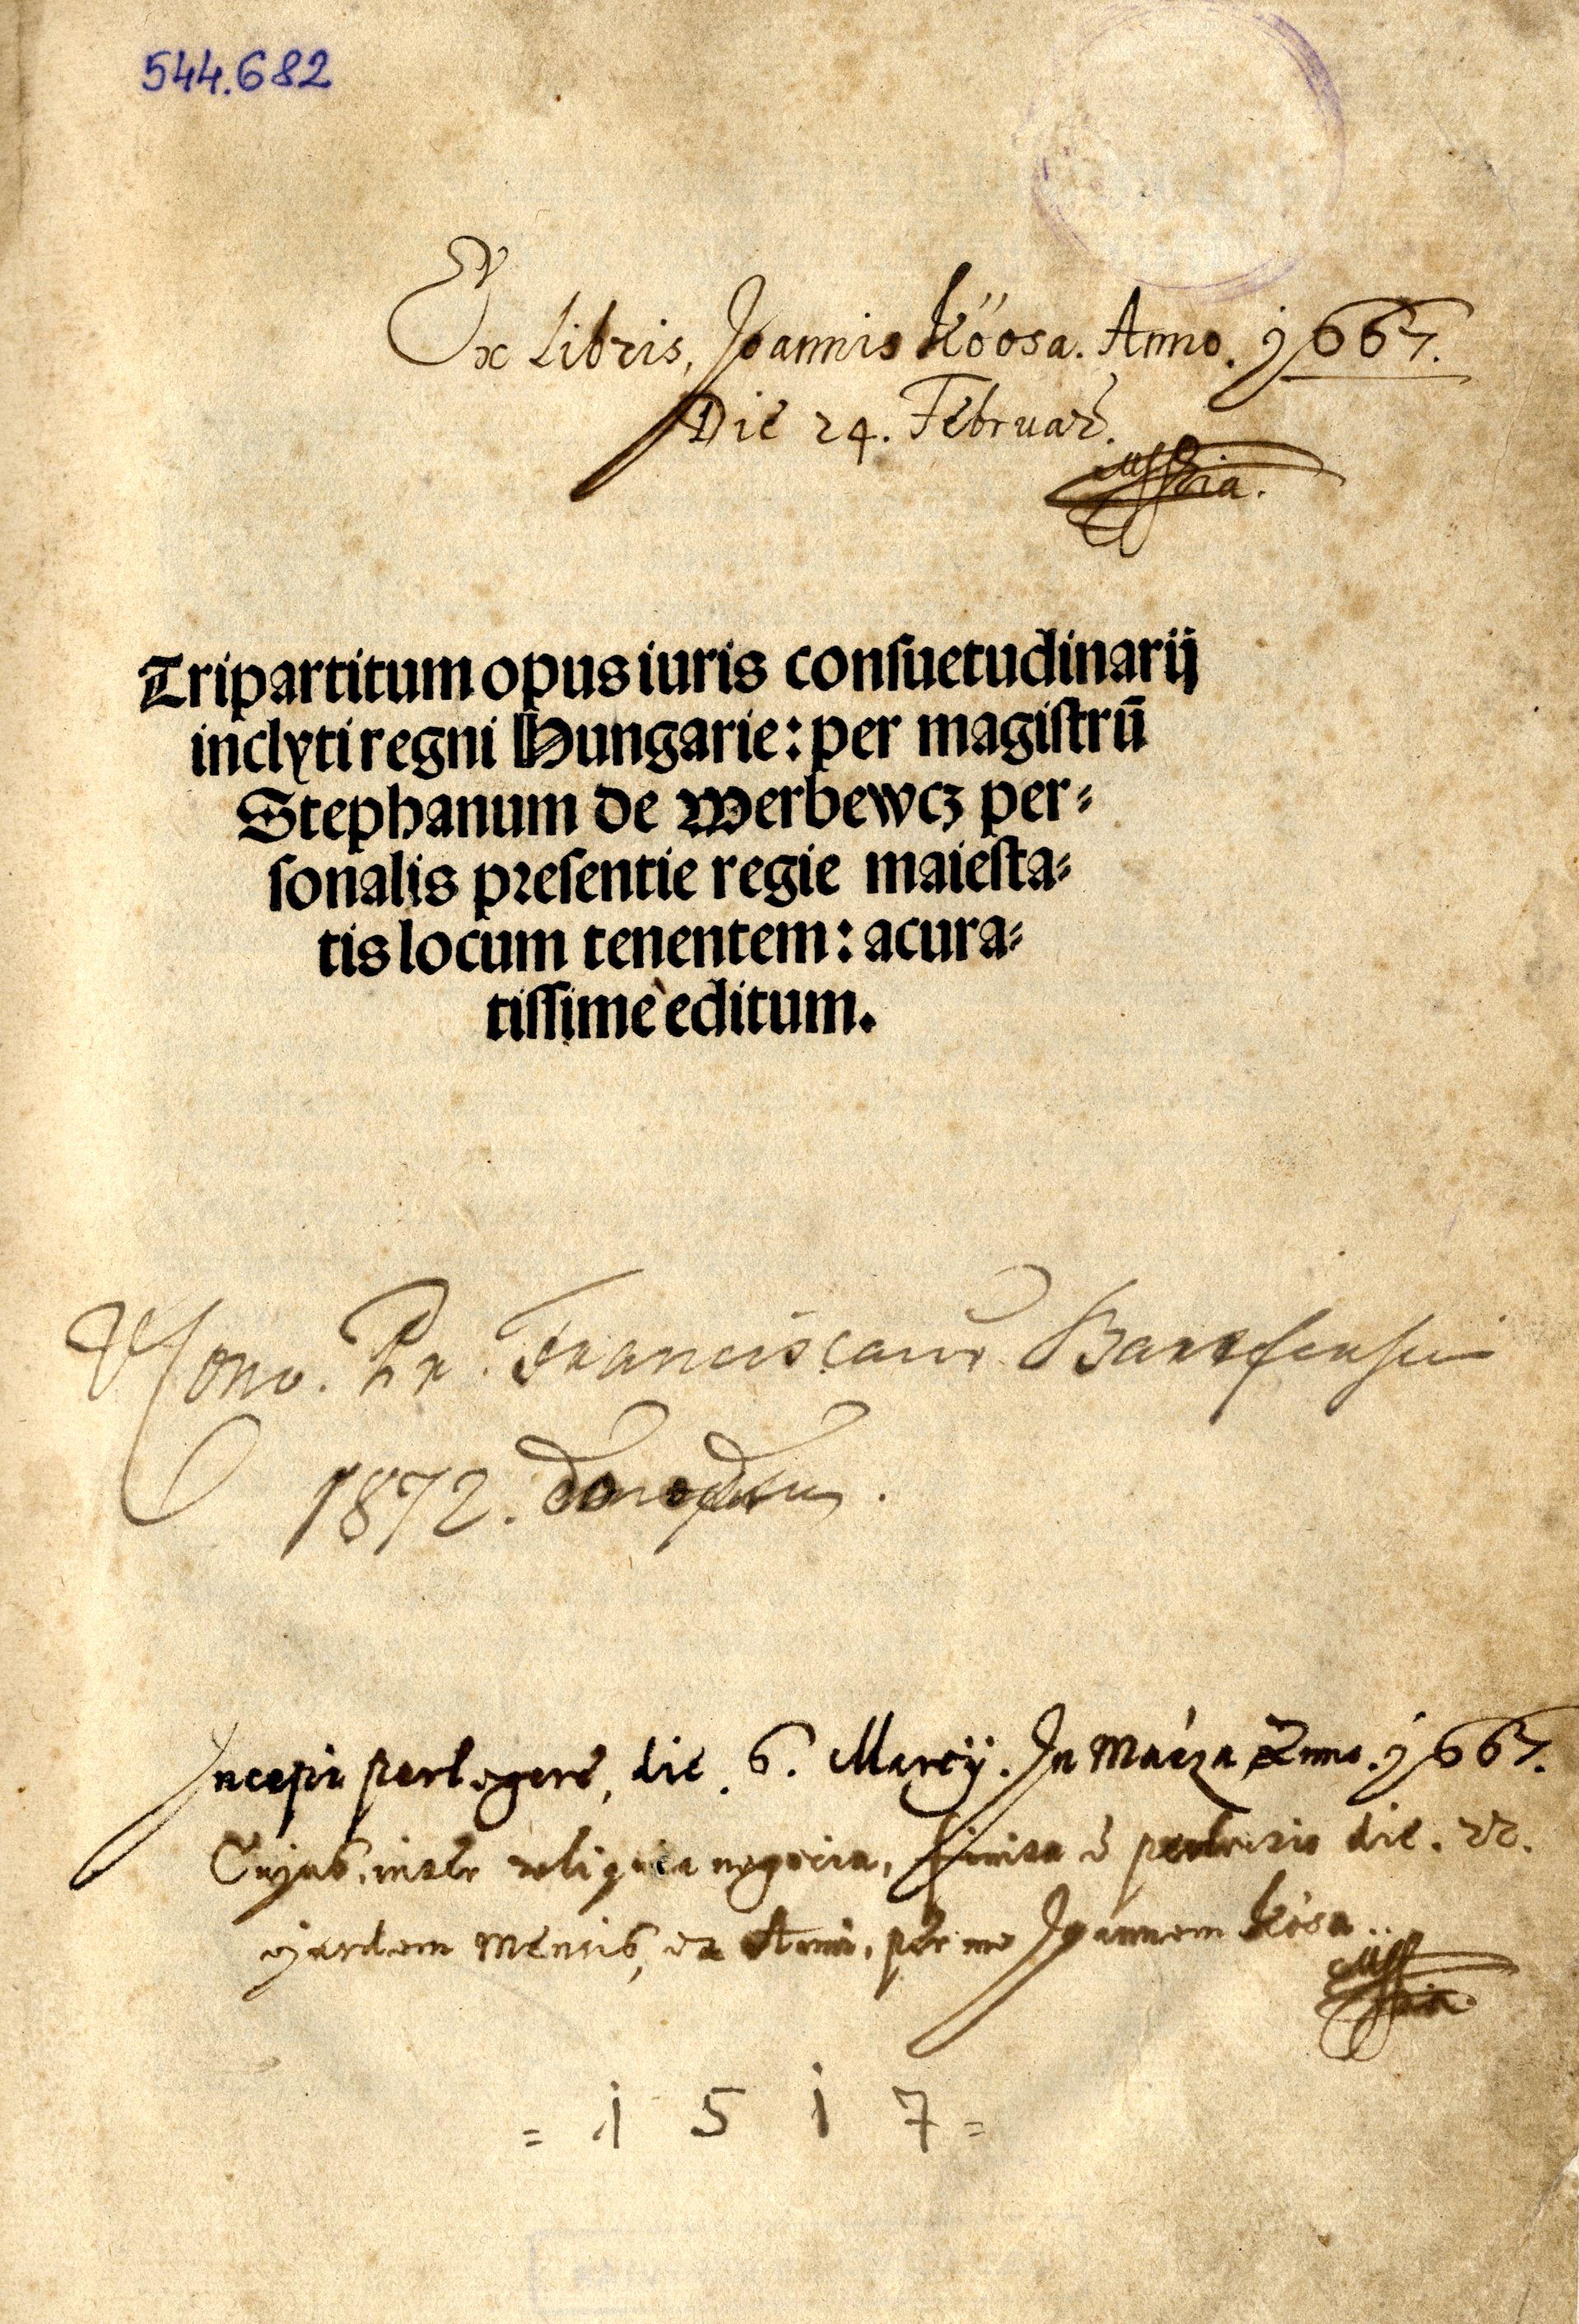 544.682
Ex Libris, Joannis Köosa. Anno. 1667.
Die 24. Februar.
Tripartitum opus iuris conſuetudinarij
inclyti regni Hungarie: per magiſtrū
Stephanum de Werbewcz per-
ſonalis preſentie regie maieſta-
tis locum tenentem: acura-
tiſſime editum.
Pr. Franciscanus
1872.
Incepi perlegere, die. 6. Martij. In Mácza Anno. 1667.
Cujus, inter reliqua negocia, finita è die. 22.
ejusdem Mensis, et Anni, per me Joannem Kósa
= 1 5 1 7 =